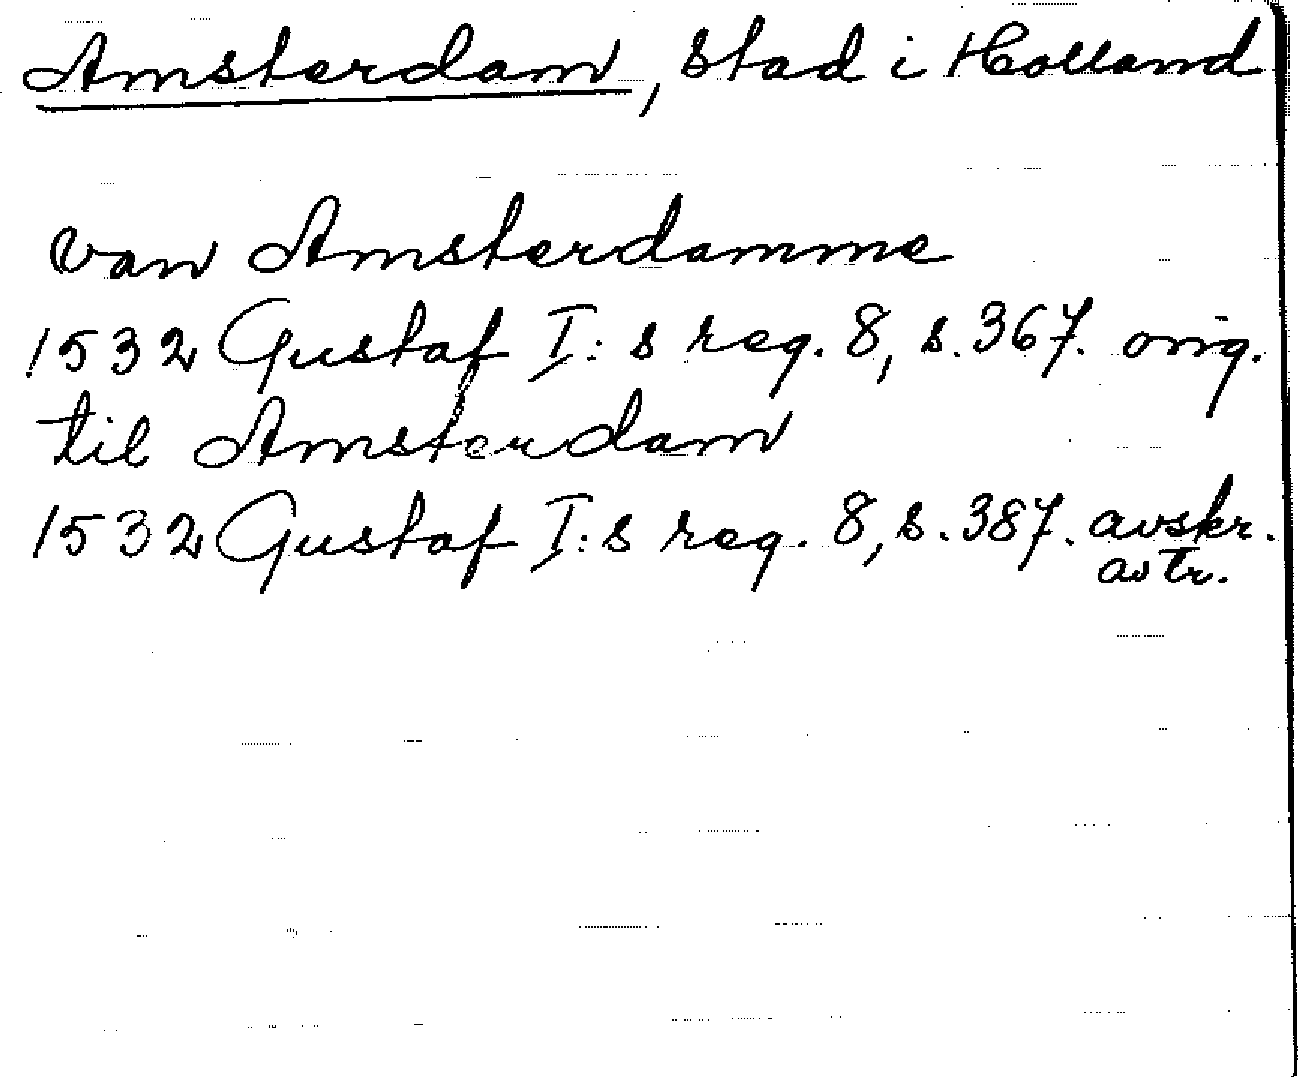 Amsterdam, stad i Holland
van Amsterdamme
1532 Gustaf I:s reg. 8, s. 367. orig.
til Amsterdam
1532 Gustaf I:s reg. 8, s. 387. avskr.
avtr.